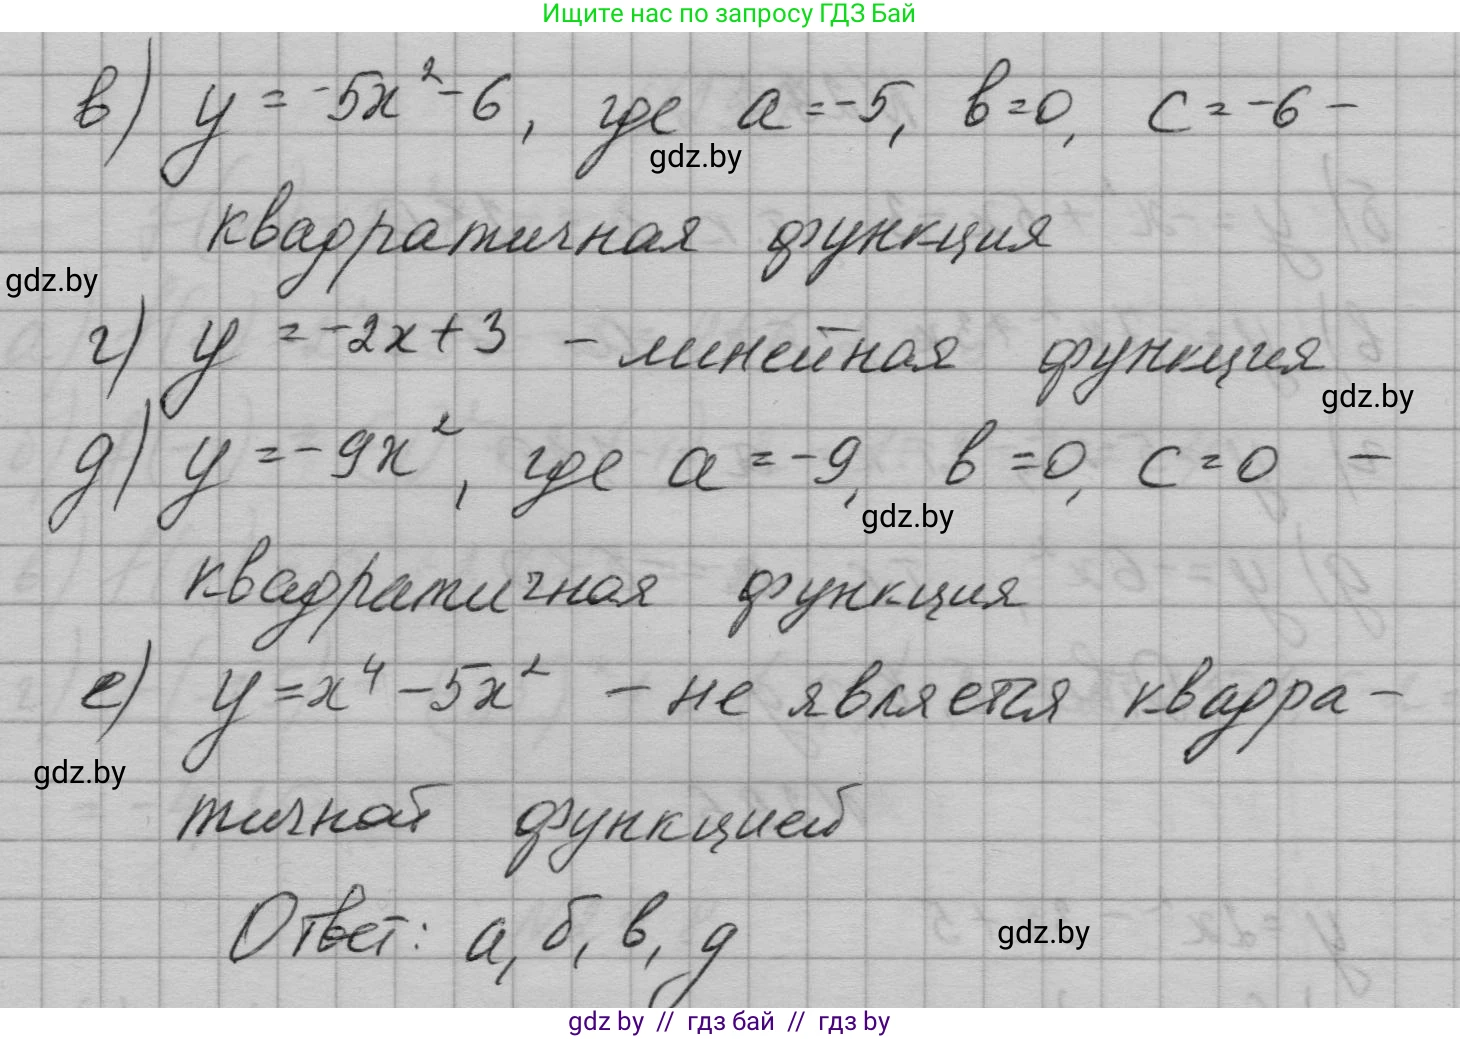 Ищите нас по запросу ГДЗ Бай
в) y = -5x² - 6, где a = -5, в = 0, c = -6 -
gdz.by
квадратичная функция
gdz.by
г) y = -2x + 3 - линейная функция
gdz.by
д) y = -9x², где a = -9, в = 0, c = 0 -
gdz.by
квадратичная функция
е) y = x⁴ - 5x² - не является квадра-
gdz.by
тичной функцией
Ответ: а, б, в, д
gdz.by
gdz by // гдз бай // гдз by